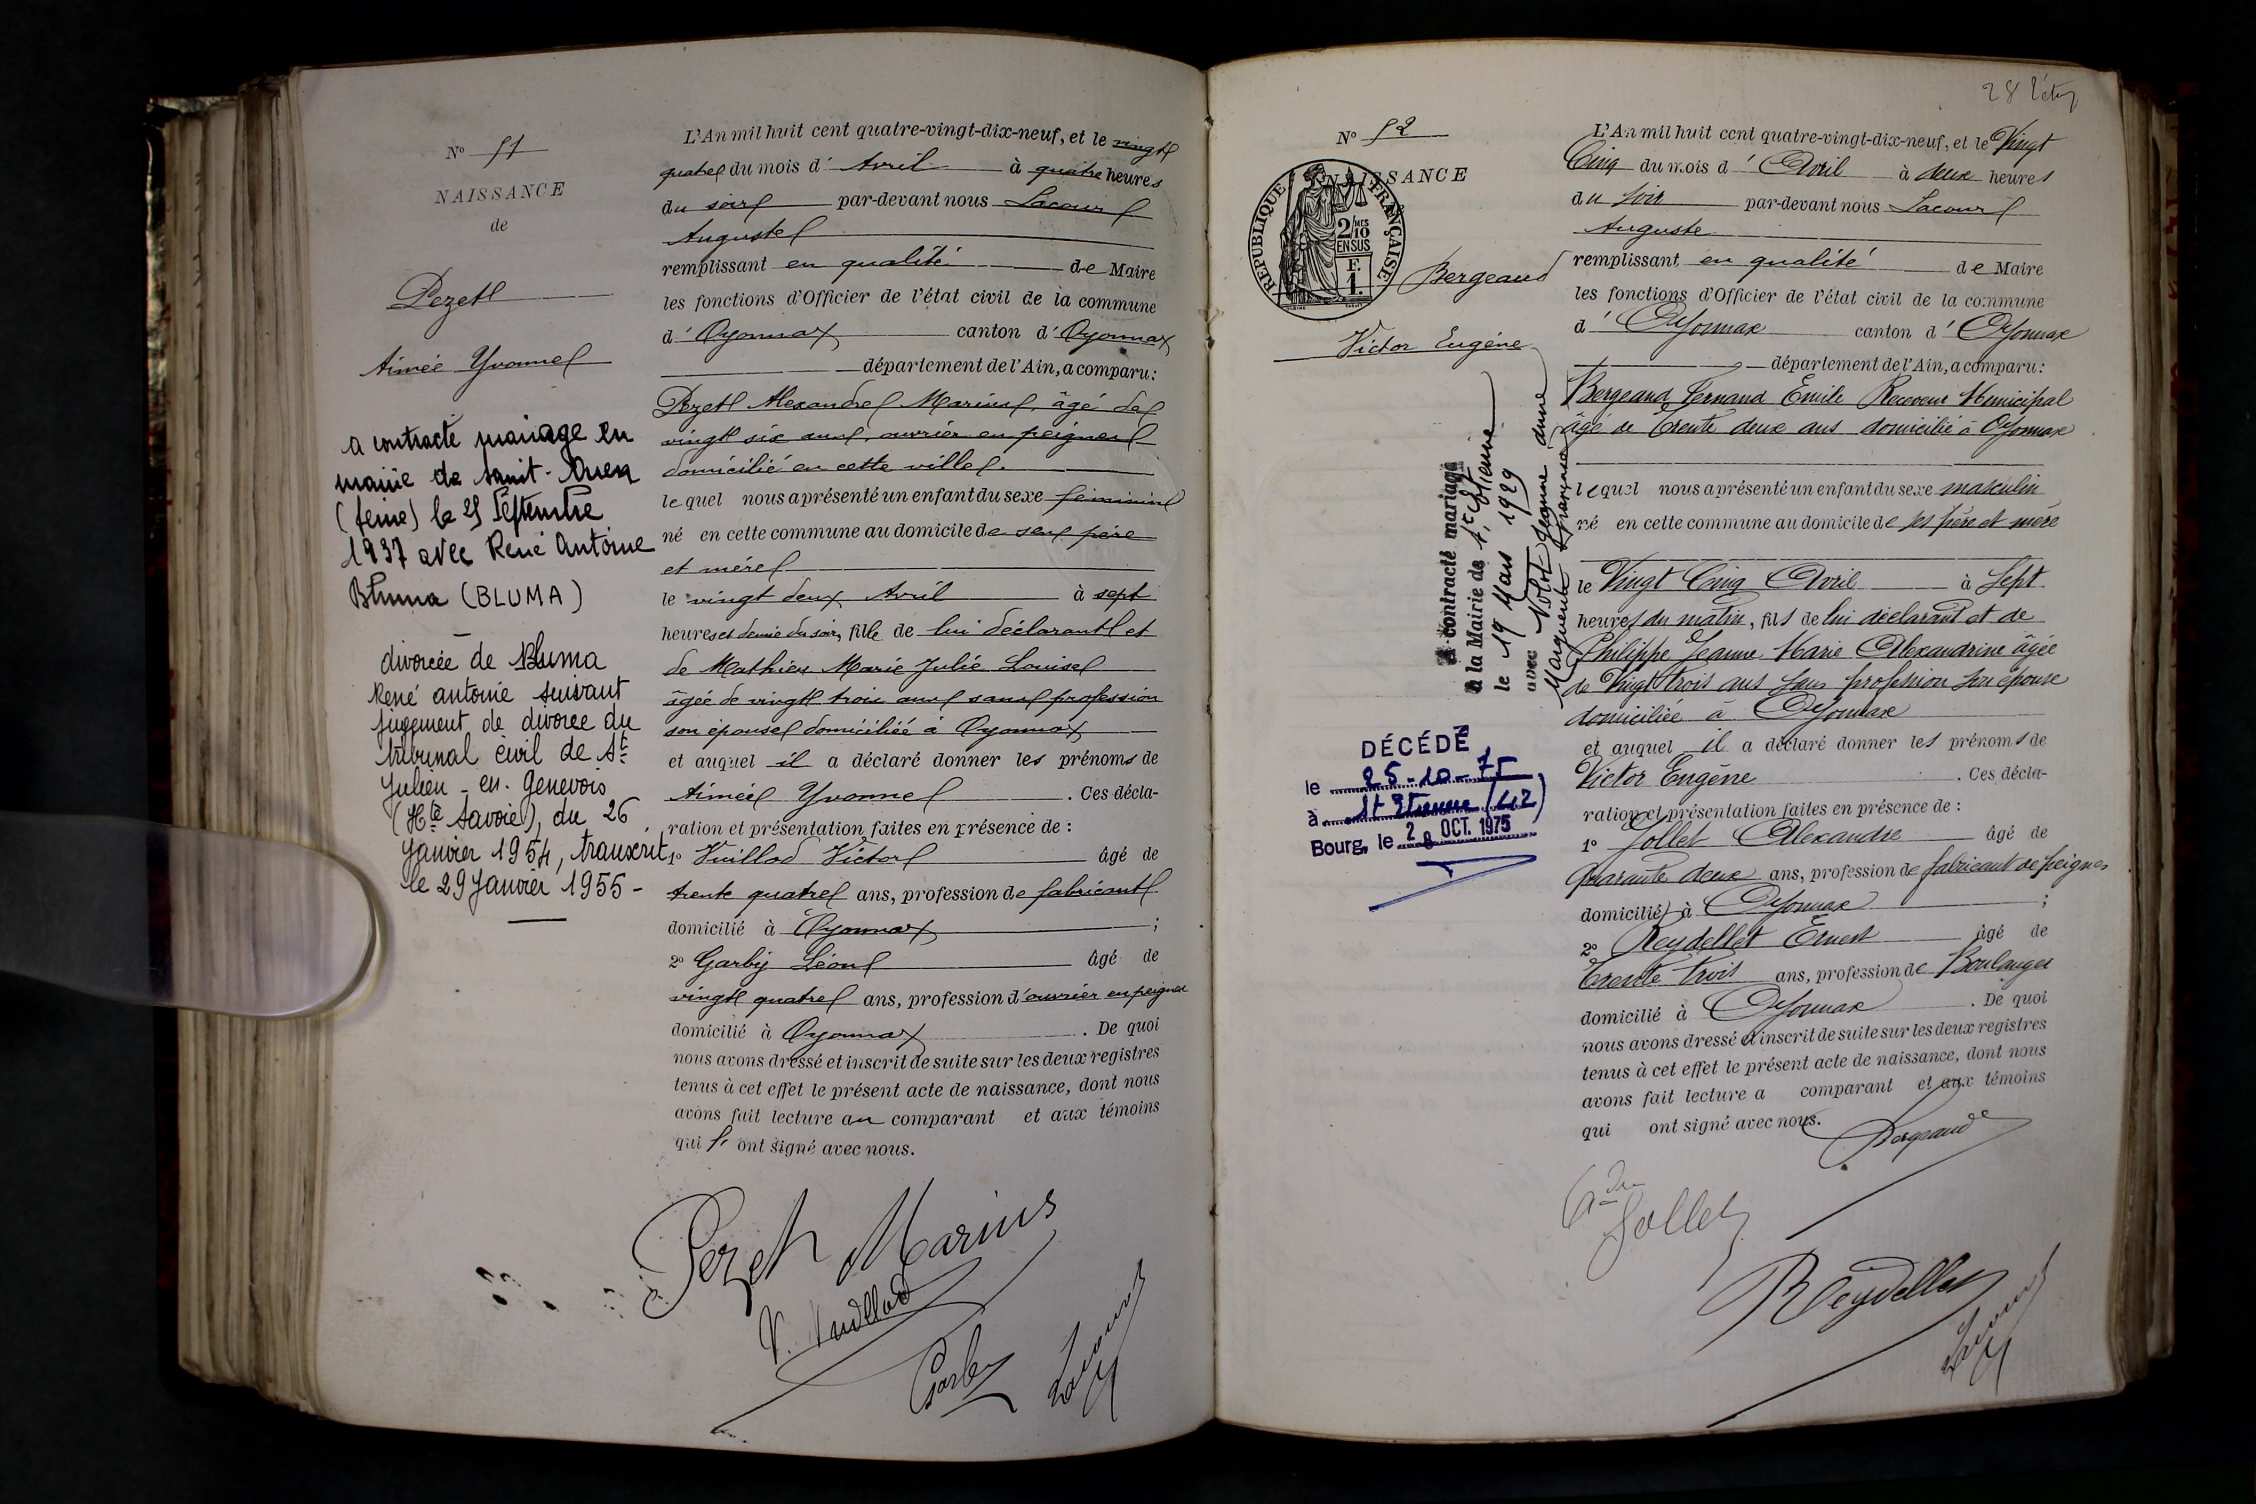 Nº 51
NAISSANCE
de
Pezet
Aimée Yvonne
a contracté mariage en
mairie de Saint-Ouen
(Seine) le 25 Septembre
1937 avec René Antoine
Bluma (BLUMA)
divorcée de Bluma
René antoine suivant
jugement de divorce du
tribunal civil de St
Julien-en-Genevois
(Hte Savoie), du 26
Janvier 1954, transcrit
le 29 Janvier 1955-
L'An mil huit cent quatre-vingt-dix-neuf, et le vingt
quatre du mois d' Avril à quatre heures
du soir par-devant nous Lacour
Auguste
remplissant en qualité de Maire
les fonctions d'Officier de l'état civil de la commune
d' Oyonnax canton d' Oyonnax
département de l'Ain, a comparu:
Pezet Alexandre Marius, âgé de
vingt six ans, ouvrier en peignes
domicilié en cette ville.
lequel nous a présenté un enfant du sexe féminin
né en cette commune au domicile de ses père
et mère
le vingt deux Avril à sept
heures et demie du soir, fille de lui déclarant et
de Mathieu Marie Julie Louise
âgée de vingt trois ans sans profession
son épouse domiciliée à Oyonnax
et auquel il a déclaré donner les prénoms de
Aimée Yvonne . Ces décla-
ration et présentation faites en présence de :
1º Vuillod Victor âgé de
trente quatre ans, profession de fabricant
domicilié à Oyonnax ;
2º Garby Léon âgé de
vingt quatre ans, profession d'ouvrier en peignes
domicilié à Oyonnax . De quoi
nous avons dressé et inscrit de suite sur les deux registres
tenus à cet effet le présent acte de naissance, dont nous
avons fait lecture au comparant et aux témoins
qui l' ont signé avec nous.
Pezet Marius
V. Vuillod
Garby
Lacour
Nº 52
NAISSANCE
RÉPUBLIQUE FRANÇAISE
2/10
EN SUS
F.
1.
Bergeaud
Victor Eugène
A contracté mariage
à la Mairie de St Etienne
le 19 Mars 1929
avec Volot Jeanne Anne
Marguerite Françoise
DÉCÉDÉ
le 25-10-75
à St Etienne (42)
Bourg, le 28 OCT. 1975
L'An mil huit cent quatre-vingt-dix-neuf, et le Vingt
Cinq du mois d' Avril à deux heures
du soir par-devant nous Lacour
Auguste
remplissant en qualité de Maire
les fonctions d'Officier de l'état civil de la commune
d' Oyonnax canton d' Oyonnax
département de l'Ain, a comparu:
Bergeaud Fernand Emile Receveur Municipal
âgé de trente deux ans domicilié à Oyonnax
lequel nous a présenté un enfant du sexe masculin
né en cette commune au domicile de ses père et mère
le Vingt Cinq Avril à Sept
heures du matin, fils de lui déclarant et de
Philippe Jeanne Marie Alexandrine âgée
de Vingt trois ans sans profession son épouse
domiciliée à Oyonnax
et auquel il a déclaré donner les prénoms de
Victor Eugène . Ces décla-
ration et présentation faites en présence de :
1º Jollet Alexandre âgé de
Quarante deux ans, profession de fabricant de peignes
domicilié à Oyonnax ;
2º Reydellet Ernest âgé de
trente trois ans, profession de Boulanger
domicilié à Oyonnax . De quoi
nous avons dressé et inscrit de suite sur les deux registres
tenus à cet effet le présent acte de naissance, dont nous
avons fait lecture a comparant et aux témoins
qui ont signé avec nous.
Bergeaud
Jollet
Reydellet
Lacour